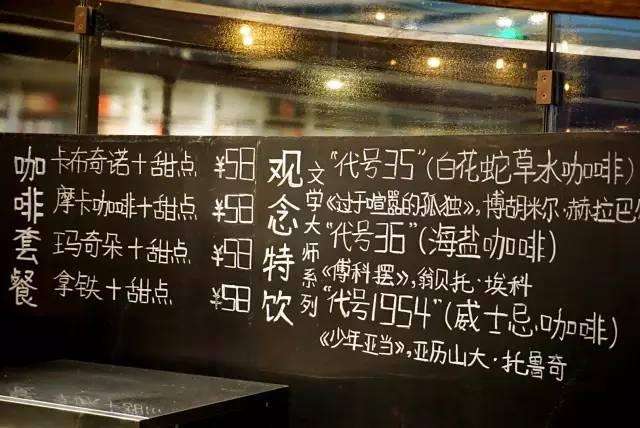 咖啡套餐
卡布奇诺+甜点 ¥58
摩卡咖啡+甜点 ¥58
玛奇朵+甜点 ¥58
拿铁+甜点 ¥58
观念特饮
文学大师系列
“代号35”(白花蛇草水咖啡)
《过于喧嚣的孤独》,博胡米尔·赫拉巴尔
“代号36”(海盐咖啡)
《傅科摆》,翁贝托·埃科
“代号1954”(威士忌.咖啡)
《少年亚当》,亚历山大·托鲁奇